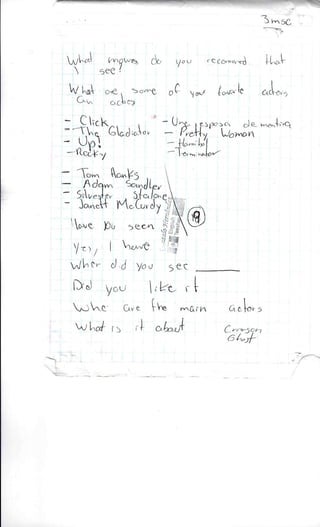 3 msc
What movies do you recommend that
I see?
What are some of your favorite actors
- Click
- The Gladiator
- Up!
- Rocky
- Una esposa de mentira
- Pretty Woman
- Hanibal
- Terminator
- Tom Hanks
- Adam Sandler
- Silvester Stalone
- Janett McCurdy
9
Have you seen
Yes, I have
When did you see ______
Did you like it
Who are the main actors
What is it about
Crimson
Ghost